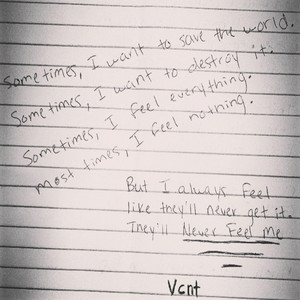 Sometimes, I want to save the world.
Sometimes, I want to destroy it.
Sometimes, I feel everything.
most times, I feel nothing.
But I always feel
like they'll never get it.
They'll Never Feel me
Vcnt